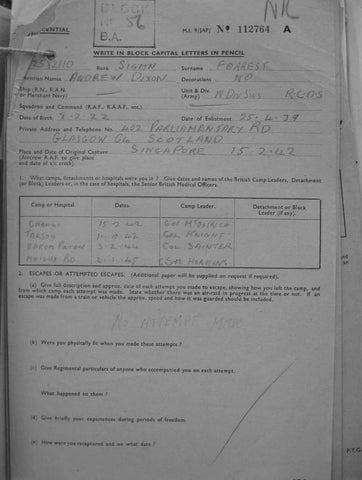 NR
BLOCK
Nº 56
B.A.
DENTIAL
M.I. 9/JAP/ Nº 112764 A
WRITE IN BLOCK CAPITAL LETTERS IN PENCIL
Rank SIGMN Surname FORREST
Christian Names ANDREW DIXON Decorations NO
Ship (R.N., R.A.N. or Merchant Navy) Unit & Div. (Army) DIV SIGS RCOS
Squadron and Command (R.A.F., R.A.A.F., etc.)
Date of Birth 8-2-22 Date of Enlistment 25-4-39
Private Address and Telephone No. 402 PARLIAMENTARY RD
GLASGOW SCOTLAND
Place and Date of Original Capture SINGAPORE 15.2.42
(Aircrew R.A.F. to give place
and date of a/c crash)
1. What camps, detachments or hospitals were you in? Give dates and names of the British Camp Leaders, Detachment
(or Block) Leaders or, in the case of hospitals, the Senior British Medical Officers.
Camp or Hospital. Dates. Camp Leader. Detachment or Block
Leader (if any).
CHANGI 15-2-42 COL
TARSOA COL KNIGHT
3-2-44 COL
RD 2-1-45 CSM
2. ESCAPES OR ATTEMPTED ESCAPES. (Additional paper will be supplied on request if required).
(a) Give full description and approx. date of each attempt you made to escape, showing how you left the camp, and
from which camp each attempt was made. State whether there was an air-raid in progress at the time or not. If an
escape was made from a train or vehicle the approx. speed and how it was guarded should be included.
NO ATTEMPT MADE
(b) Were you physically fit when you made these attempts?
(c) Give Regimental particulars of anyone who accompanied you on each attempt.
What happened to them?
(d) Give briefly your experiences during periods of freedom.
(e) How were you recaptured and on what date?
P.T.O